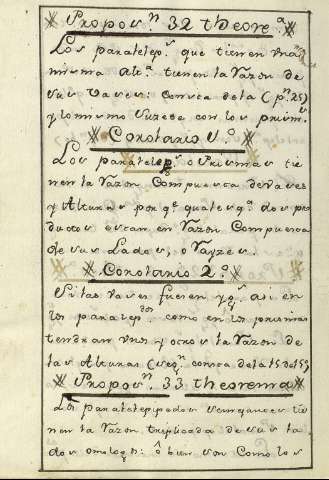 Propos.n 32 theore.a
Los paralelep.s que tienen una
misma Alt.a tienen la Razon de
sus Vases: consta de la (pn 25)
y lo mismo sucede con los prism.s
Corolario 1.o
Los paralelep.s o Prismas tie
nen la Razon Compuesta de Vases
y Alturas por q.e qualesq.a dos pro
ductos estan en Razon Compuesta
de sus Lados, o Rayzes.
Corolario 2.o
Si las Vases fueren yg.s asi en
los paralep.dos como en los prismas
tendran unos y otros la Razon de
las Alturas (seg.n consta de la 15 del 5º)
Propos.n 33 theorema
Los paralelepipedos semejantes tie
nen la Razon triplicada de sus la
dos omologos: ô bien son como los